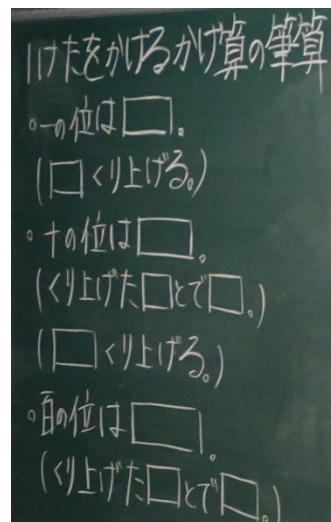 1けたをかけるかけ算の筆算
○一の位は□。
(□くり上げる。)
○十の位は□。
(くり上げた□とで□。)
(□くり上げる。)
○百の位は□。
(くり上げた□とで□。)